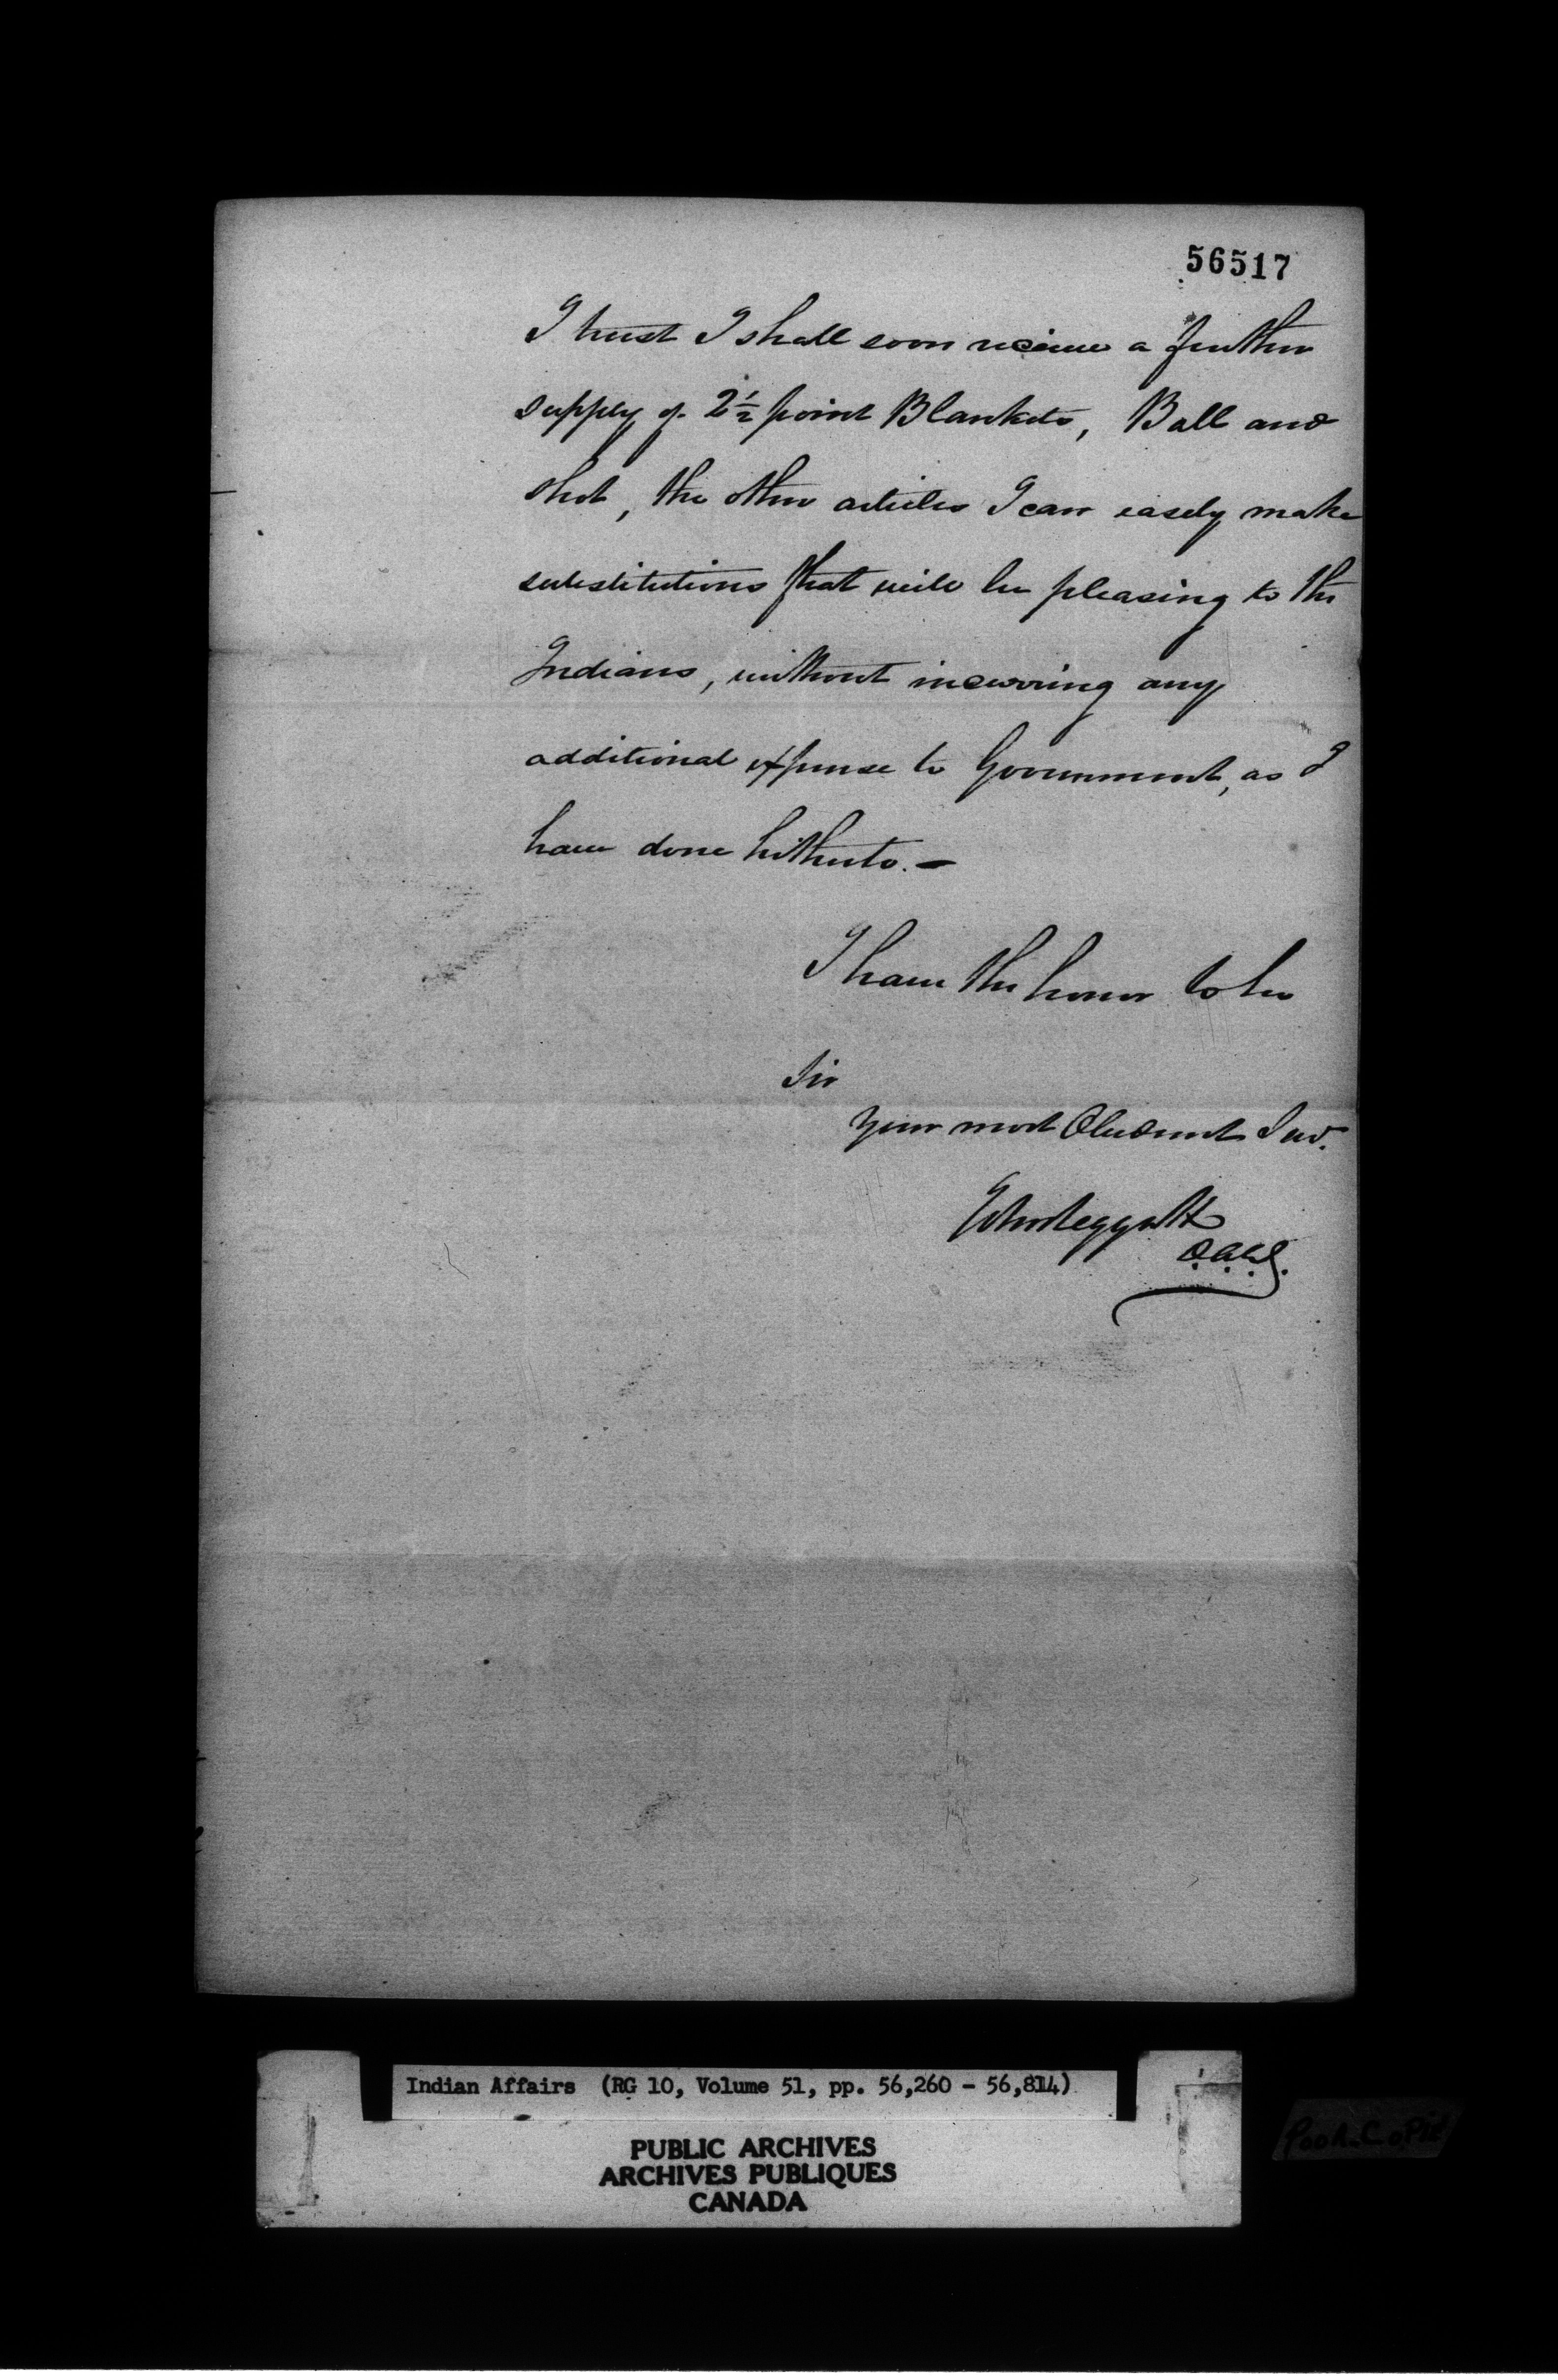 56517
I trust I shall soon receive a further
supply of 2½ point Blankets, Ball and
shot, the other articles I can easely make
substitutions that will be pleasing to the
Indians, without incurring any
additional expense to Government, as I
have done hitherto. —
I have the honor to be
Sir
Your most Obedient Serv.
D.A.C.G.
Indian Affairs (RG 10, Volume 51, pp. 56,260 - 56,814)
PUBLIC ARCHIVES
ARCHIVES PUBLIQUES
CANADA